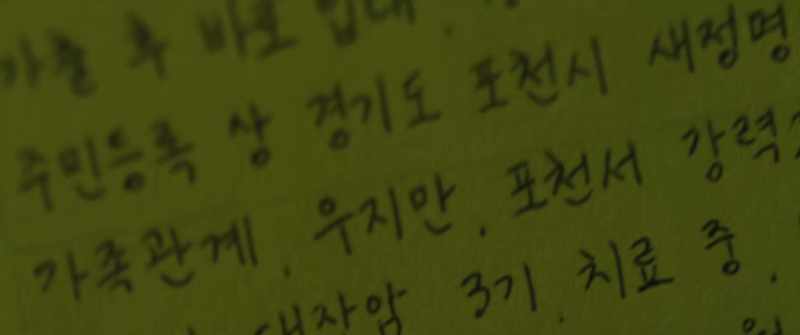 가출 후 바로 입대.
주민등록 상 경기도 포천시 새정명
가족관계. 우지만. 포천서 강력
대장암 3기. 치료 중.